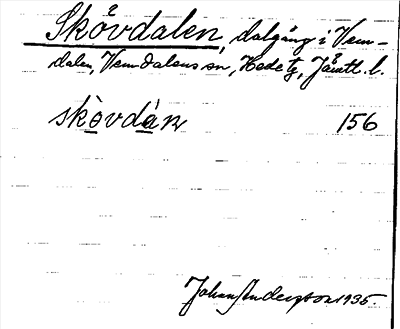 Skövdalen, dalgång i Vem-
dalen, Vemdalens sn, Hede tg, Jämtl. l.
skòvdàn 156
Johan Anderzon 1935.